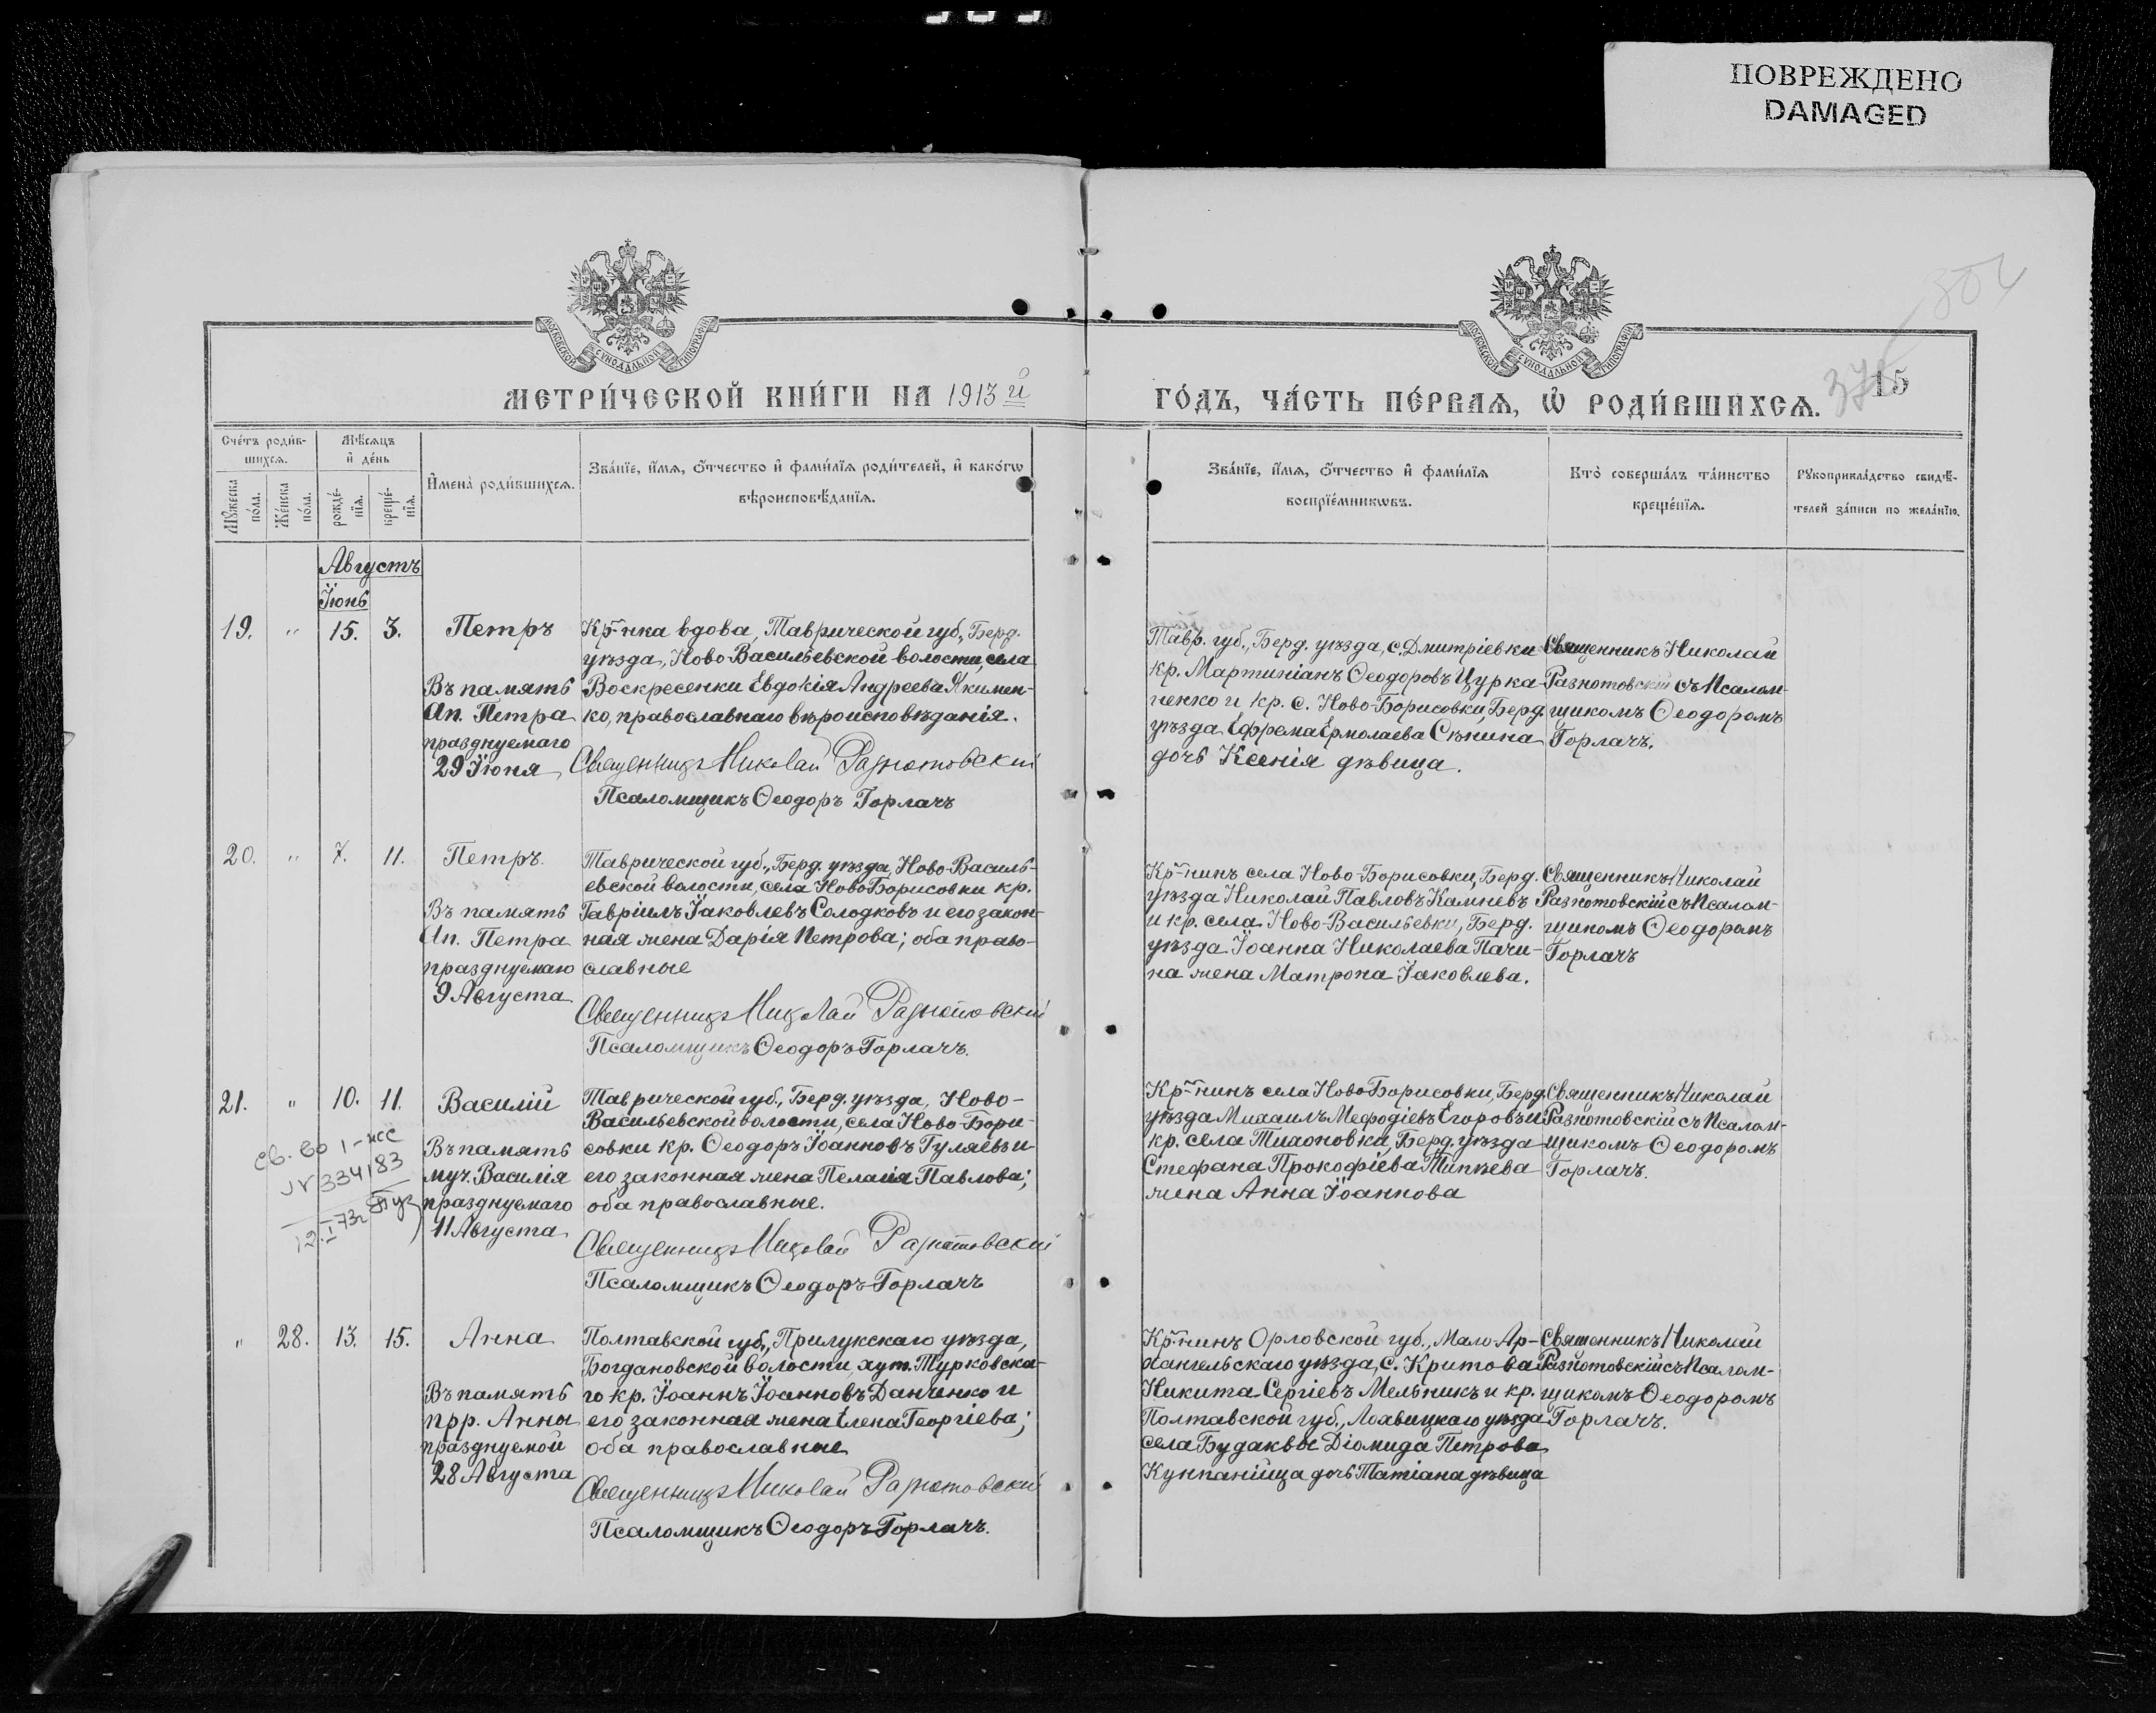 ПОВРЕЖДЕНО
DAMAGED
МОСКОВСКОЙ СѴНОДАЛЬНОЙ ТИПОГРАФІИ
МОСКОВСКОЙ СѴНОДАЛЬНОЙ ТИПОГРАФІИ
МЕТРИ́ЧЕСКОЙ КНИ́ГИ НА 1913 й
ГО́ДЪ, ЧА́СТЬ ПЕ́РВАѦ, Ѡ РОДИ́ВШИХСѦ.
15
Сче́тъ роди́в-
шихсѧ.
Мѣ́сѧцъ
и де́нь
Му́жеска
по́ла.
Же́нска
по́ла.
рожде́-
нїѧ.
креще́-
нїѧ.
Имена̀ роди́вшихсѧ.
Зва́нїе, и́мѧ, о́тчество и фами́лїѧ роди́телей, и како́гѡ
вѣроисповѣ́данїѧ.
Зва́нїе, и́мѧ, о́тчество и фами́лїѧ
воспрїе́мникѡвъ.
Кто̀ соверша́лъ та́инство
креще́нїѧ.
Рукоприкла́дство свидѣ́-
телей за́писи по жела́нїю.
Августъ
Іюнь
19. " 15. 3. Петръ
Въ память
Ап. Петра
празднуемаго
29 Іюня
Кр-нка вдова, Таврической губ., Берд.
уѣзда, Ново Васильевской волости, села
Воскресенки Евдокія Андреева Якимен-
ко, православнаго вѣроисповѣданія.
Священникъ Николай Разнотовскій
Псаломщикъ Ѳеодоръ Горлачъ
Тавр. губ., Берд. уѣзда, с. Дмитріевки
кр. Мартиніанъ Ѳеодоровъ Цурка-
ненко и кр. с. Ново-Борисовки, Берд.
уѣзда Ефрема Ермолаева Сѣнина
дочь Ксенія дѣвица.
Священникъ Николай
Разнотовскій съ Псалом-
щикомъ Ѳеодоромъ
Горлачъ.
20. " 7. 11. Петръ.
Въ память
Ап. Петра
празднуемаго
9 Августа
Таврической губ., Берд. уѣзда, Ново-Василь-
евской волости, села Ново Борисовки кр.
Гавріилъ Іаковлевъ Солодковъ и его закон-
ная жена Дарія Петрова; оба право-
славные
Священникъ Николай Разнотовскій
Псаломщикъ Ѳеодоръ Горлачъ.
Кр-нинъ села Ново-Борисовки, Берд.
уѣзда Николай Павловъ Камневъ
и кр. села Ново-Васильевки, Берд.
уѣзда Іоанна Николаева Пачи-
на жена Матрона Іаковлева.
Священникъ Николай
Разнотовскій съ Псалом-
щикомъ Ѳеодоромъ
Горлачъ
21. " 10. 11. Василій
Въ память
муч. Василія
празднуемаго
11 Августа
св. во
№ 334183
Таврической губ., Берд. уѣзда, Ново-
Васильевской волости, села Ново-Бори-
совки кр. Ѳеодоръ Іоанновъ Гуляевъ и
его законная жена Пелагія Павлова;
оба православные.
Священникъ Николай Разнотовскій
Псаломщикъ Ѳеодоръ Горлачъ
Кр-нинъ села Ново Борисовки, Берд.
уѣзда Михаилъ Меѳодіевъ Егоровъ и
кр. села Тихоновки, Берд. уѣзда
Стефана Прокофіева Типѣева
жена Анна Іоаннова
Священникъ Николай
Разнотовскій съ Псалом-
щикомъ Ѳеодоромъ
Горлачъ.
" 28. 13. 15. Анна
Въ память
прр. Анны
празднуемой
28 Августа
Полтавской губ., Прилукскаго уѣзда,
Богдановской волости, хут. Турковска-
го кр. Іоаннъ Іоанновъ Данченко и
его законная жена Елена Георгіева;
оба православные
Священникъ Николай Разнотовскій
Псаломщикъ Ѳеодоръ Горлачъ.
Кр-нинъ Орловской губ., Мало-Ар-
хангельскаго уѣзда, с. Критова
Никита Сергіевъ Мельникъ и кр.
Полтавской губ., Лохвицкаго уѣзда
села Будаквы Діомида Петрова
Кункпанійца дочь Татіана дѣвица
Священникъ Николай
Разнотовскій съ Псалом-
щикомъ Ѳеодоромъ
Горлачъ.